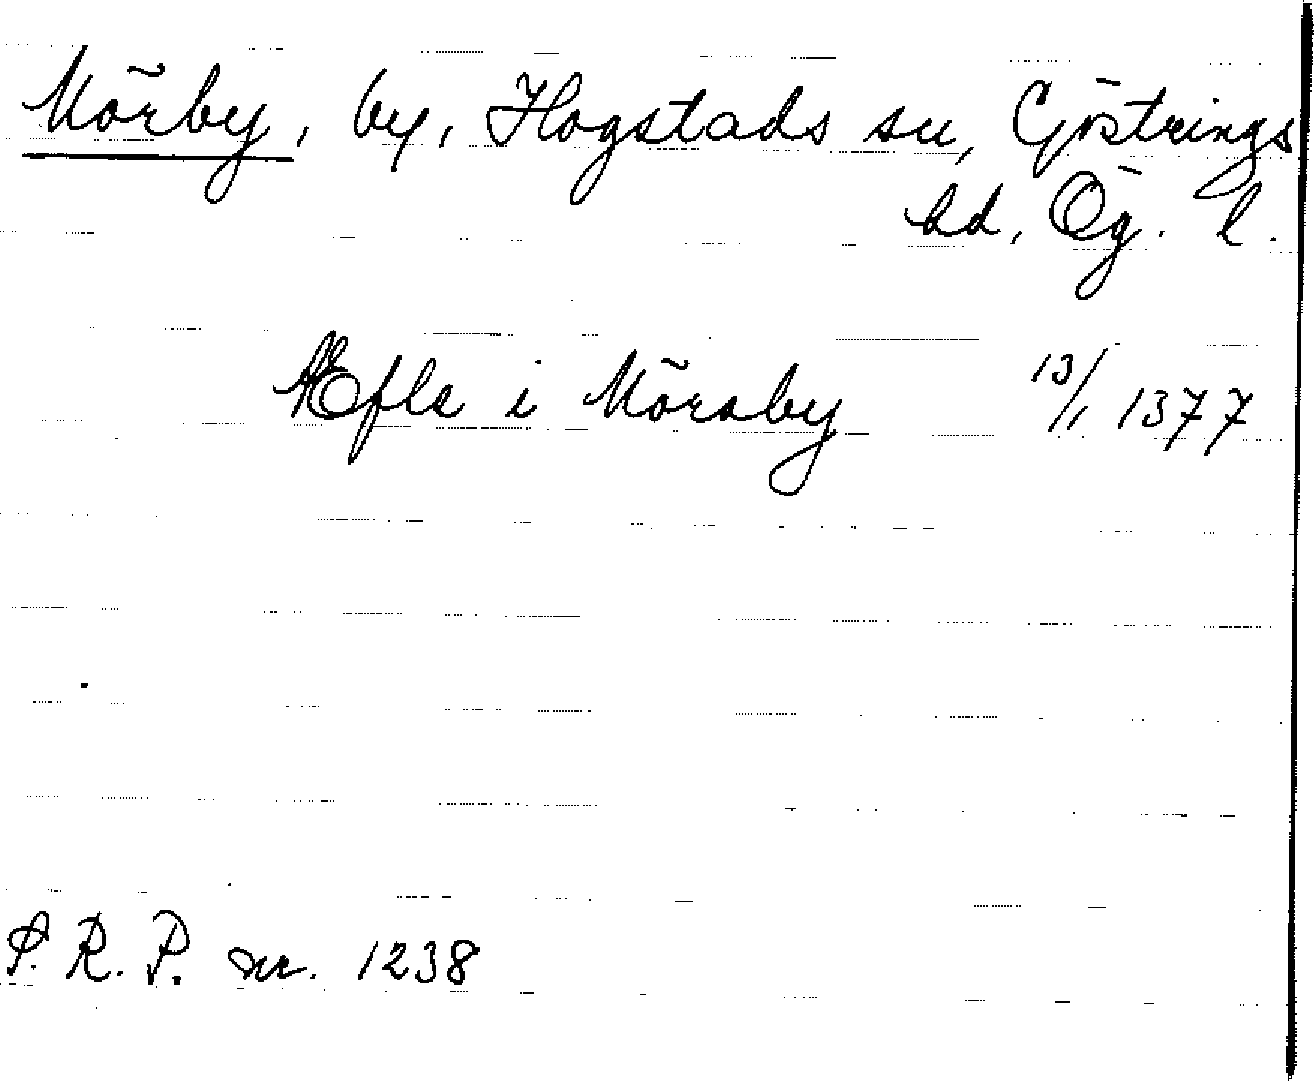 Mörby, by, Hogstads sn, Göstrings
hd, Ög. l.
Æfle i Möraby 13/1 1377
S. R. P. nr. 1238